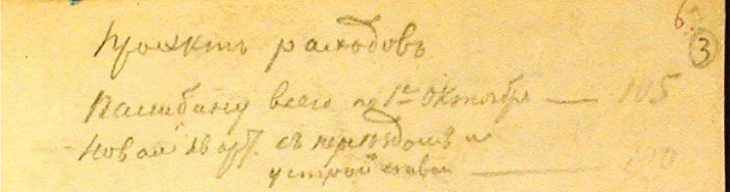 6.
3
Проэктъ расходовъ
Палибину всего по 1е Октября — 105
Новой кварт. съ переѣздомъ и
устройством —